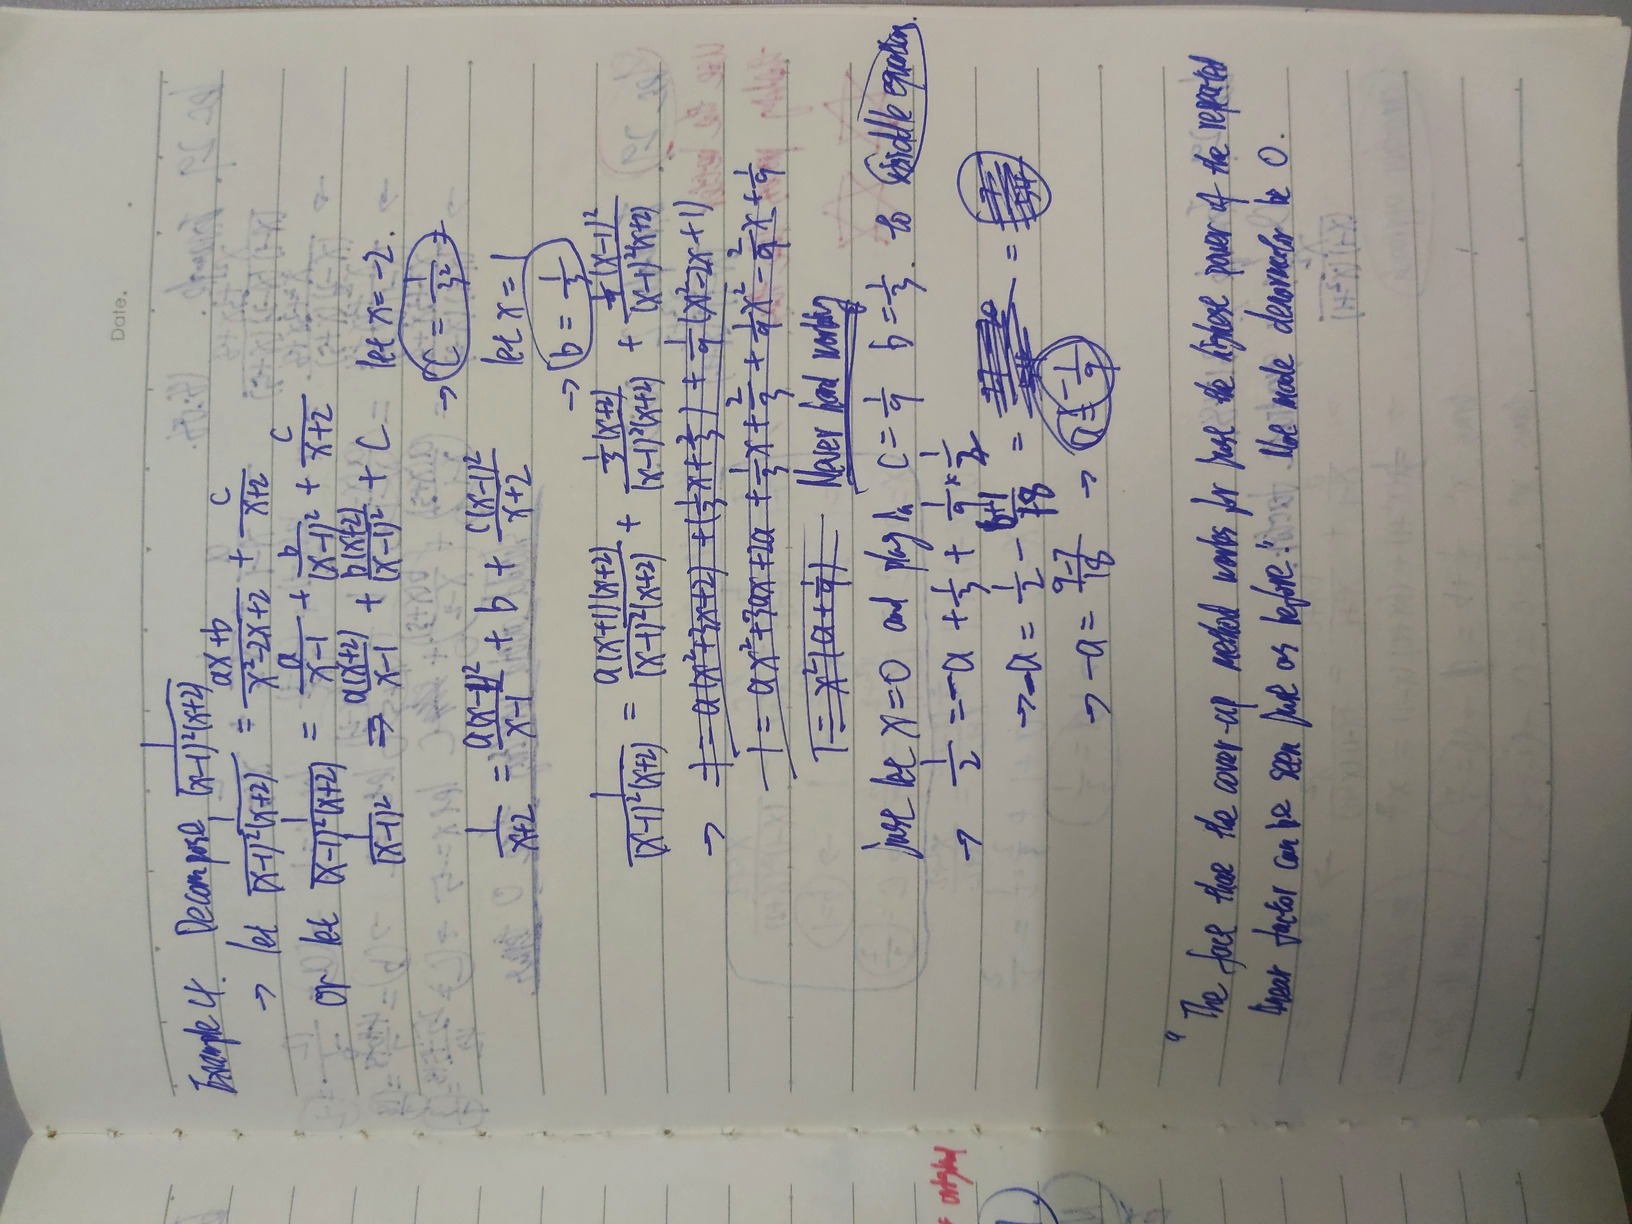 Date.
Example 4. Decompose 1/((x-1)²(x+2))
→ let 1/((x-1)²(x+2)) = (ax+b)/(x²-2x+2) + c/(x+2)
or let 1/((x-1)²(x+2)) = a/(x-1) + b/(x-1)² + c/(x+2)
1/(x-1)² ⇒ a(x+2)/(x-1) + b(x+2)/(x-1)² + C let x=-2.
→ C = 1/3² =
1/(x+2) = a(x-1)²/(x-1) + b + c(x-1)²/(x+2) let x=1
→ b = 1/3
1/((x-1)²(x+2)) = a(x+1)(x+2)/((x-1)²(x+2)) + 1/3(x+2)/((x-1)²(x+2)) + 1/9(x-1)²/((x-1)²(x+2))
→ 1 = a(x²+3x+2) + (1/3x+2/3) + 1/9(x²-2x+1)
1 = ax²+3ax+2a + 1/3x + 2/3 + 1/9x² - 2/9x + 1/9
1 = x²(a+1/9) Never hard working
Just let x=0 and plug in c=1/9 b=1/3. to middle equation.
→ 1/2 = -a + 1/3 + 1/9 × 1/2
→ -a = 1/2 - (6+1)/18 = = 7/54
→ -a = (9-7)/18 → a = -1/9
"The face thae the cover-up method works for juse the highese power of the repeated
linear factor can be seen juse as before." Not made denormator be 0.
original